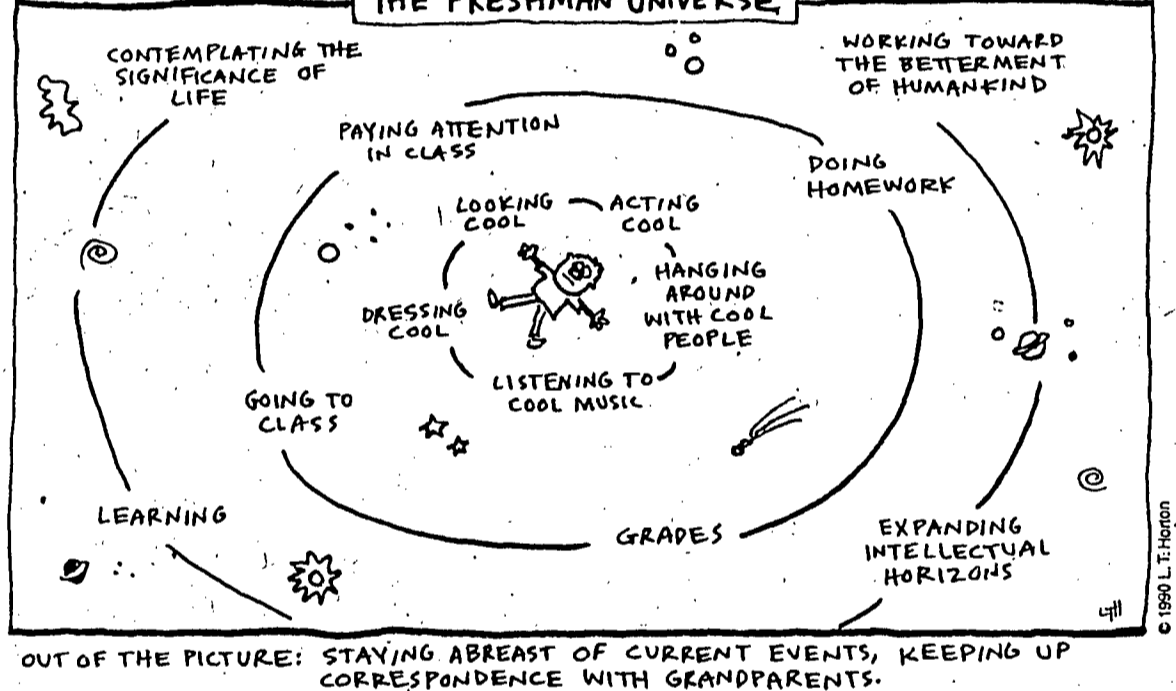 THE FRESHMAN UNIVERSE
CONTEMPLATING THE
SIGNIFICANCE OF
LIFE
WORKING TOWARD
THE BETTERMENT
OF HUMANKIND
PAYING ATTENTION
IN CLASS
DOING
HOMEWORK
LOOKING
COOL
ACTING
COOL
HANGING
AROUND
WITH COOL
PEOPLE
DRESSING
COOL
LISTENING TO
COOL MUSIC
GOING TO
CLASS
LEARNING
GRADES
EXPANDING
INTELLECTUAL
HORIZONS
LTH
© 1990 L. T. Horton
OUT OF THE PICTURE: STAYING ABREAST OF CURRENT EVENTS, KEEPING UP
CORRESPONDENCE WITH GRANDPARENTS.